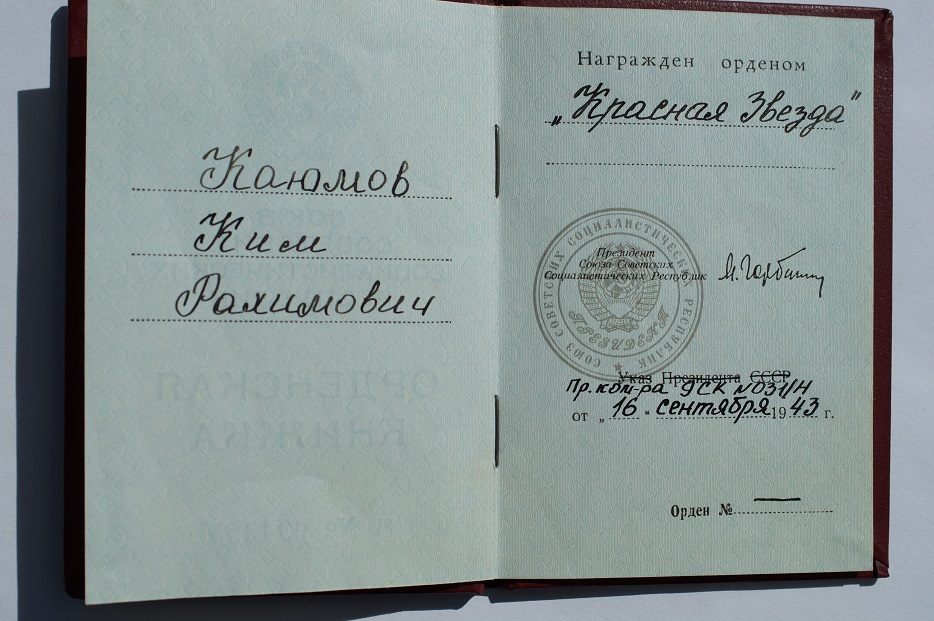 Каюмов
Ким
Рахимович
Награжден орденом
„Красная Звезда"
СОЮЗ СОВЕТСКИХ СОЦИАЛИСТИЧЕСКИХ РЕСПУБЛИК
ПРЕЗИДЕНТ
Президент
Союза Советских
Социалистических Республик
М. Горбачев
Указ Президента СССР
Пр. ком-ра 9СК №031/Н
от „16" сентября 1943 г.
Орден № —